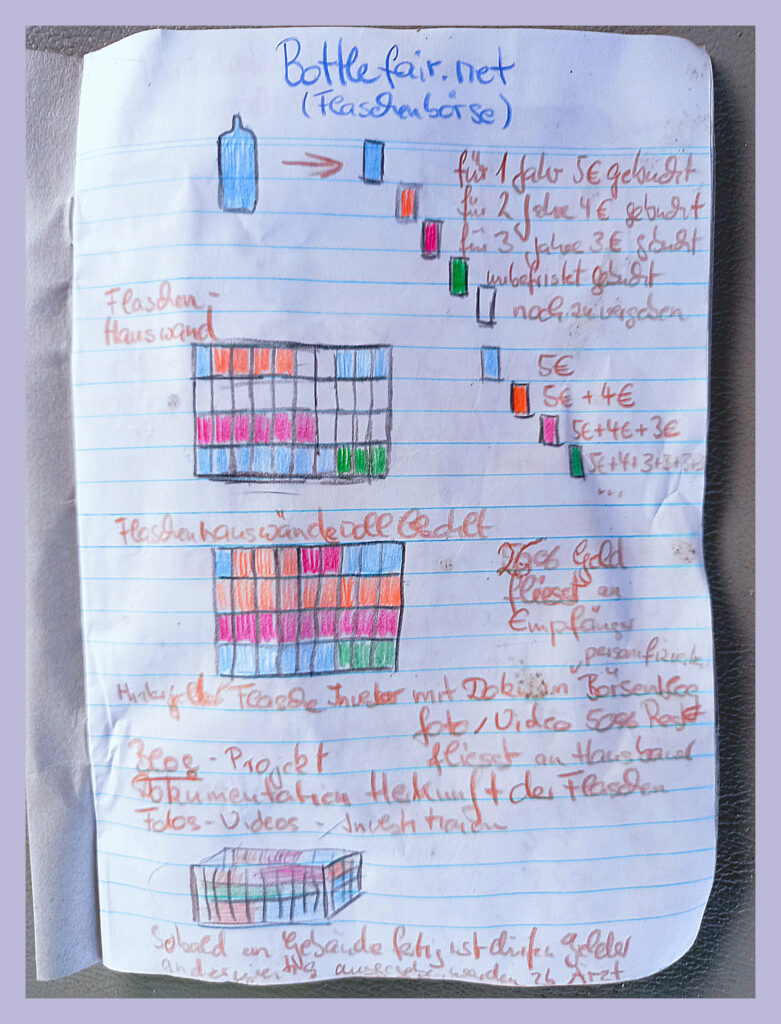 Bottlefair.net
(Flaschenbörse)
für 1 Jahr 5€ gebucht
für 2 Jahre 4€ gebucht
für 3 Jahre 3€ gebucht
unbefristet gebucht
noch zu vergeben
Flaschen-
Hauswand
5€
5€ + 4€
5€+4€+3€
5€+4+3+3+3
...
Flaschenhauswände voll
Geld
fliesst an
Empfänger
Flasche Investor mit Dokum
foto/Video 50% Rest
fliesst an Hausbau
Blog - Projekt
Dokumentation Herkunft der Flaschen
Fotos - Videos -
Sobald ein Gebäude fertig ist dürfen Gelder
anderweitig ausgegeben werden zb Arzt